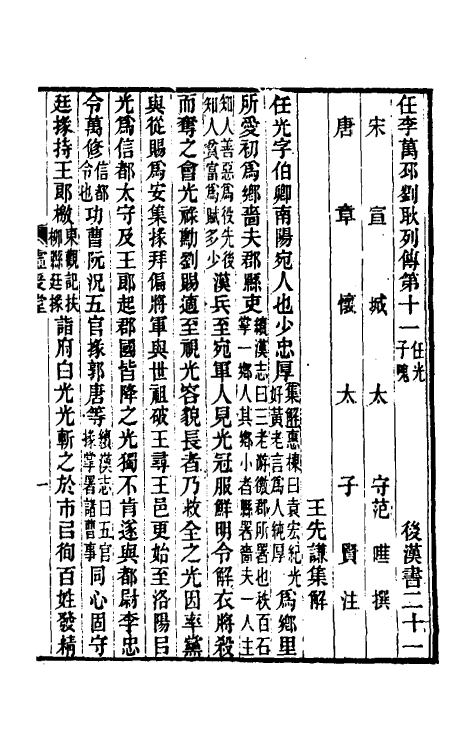 任李萬邳劉耿列傳第十一 任光 子隗 後漢書二十一
宋宣城太守范曄撰
唐章懷太子賢注
王先謙集解
任光字伯卿南陽宛人也少忠厚 集解惠棟曰袁宏紀光好黃老言爲人純厚 爲鄉里
所愛初爲鄉嗇夫郡縣吏 續漢志曰三老游徼郡所署也秩百石掌一鄉人其鄉小者縣署嗇夫一人主
知人善惡爲役先後知人貧富爲賦多少 漢兵至宛軍人見光冠服鮮明令解衣將殺
而奪之會光祿勳劉賜適至視光容貌長者乃救全之光因率黨
與從賜爲安集掾拜偏將軍與世祖破王尋王邑更始至洛陽㠯
光爲信都太守及王郎起郡國皆降之光獨不肯遂與都尉李忠
令萬修 信都令也 功曹阮況五官掾郭唐等 續漢志曰五官掾掌署諸曹事 同心固守
廷掾持王郎檄 東觀記扶柳縣廷掾 詣府白光光斬之於市㠯徇百姓發精
虛受堂
一